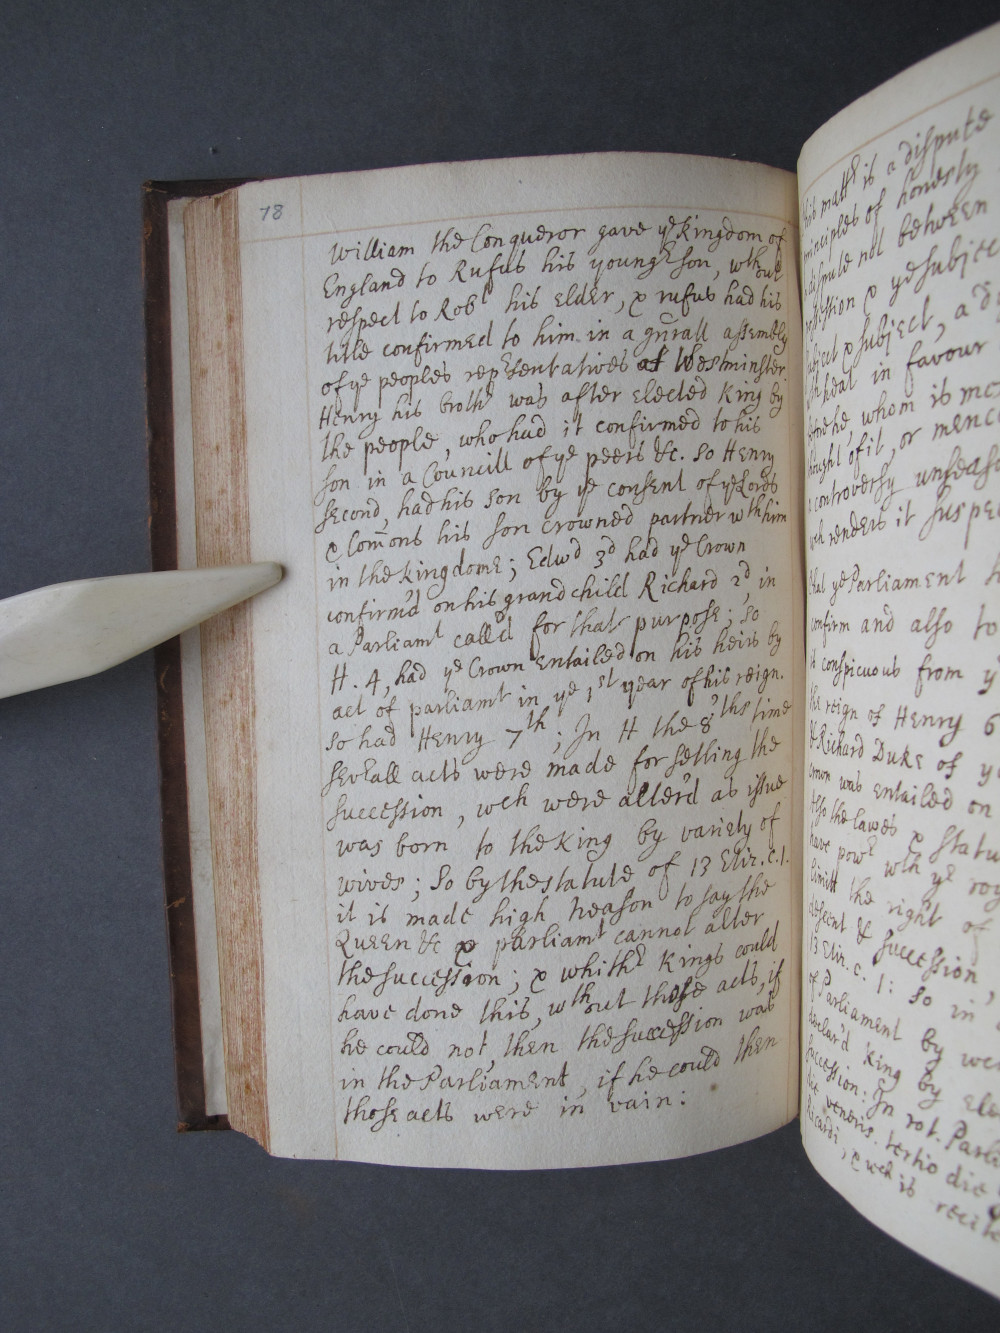 78
William the Conqueror gave ye Kingdom of
England to Rufus his youngr son, wthout
respect to Robt his Elder, & rufus had his
title confirmed to him in a gnrall assembly
of ye peoples representatives at Westminster
Henry his brothr was after elected King by
the people, who had it confirmed to his
son in a Councill of ye peers &c. So Henry
second, had his son by ye consent of ye Lords
& Comons his son crowned partner wth him
in the kingdome; Edwd 3d had ye Crown
confirm'd on his grandchild Richard 2d, in
a Parliamt call'd for that purpose; So
H. 4, had ye Crown Entailed on his heirs by
act of parliamt in ye 1st year of his reign.
So had Henry 7th; In H the 8ths time
sevrall acts were made for setling the
succession, wch were alter'd as issue
was born to the King by variety of
wives; So by the statute of 13 Eliz. c. 1.
it is made high treason to say the
Queen &c & parliamt cannot alter
the succession; & whithr Kings could
have done this, wthout those acts, if
he could not, then the succession was
in the Parliament, if he could then
those acts were in vain:
this mattr is a dispute
principles of honesty
dispute not between
& ye subject
subject & subject, a
heat in favour
he, whom is mo
thought of it, or menc
a controversy unseaso
wch renders it suspe
that ye Parliament
confirm and also to
is conspicuous from y
the reign of Henry 6
& Richard Duke of y
crown was entailed on
also the lawes & statu
have powr wth ye roy
limitt the right of
descent & succession,
13 Eliz. c. 1: So in
of Parliament by wch
declar'd King by ele
succession: In rot. Parli
die veneris. tertio die
Ricardi, & wch is recite